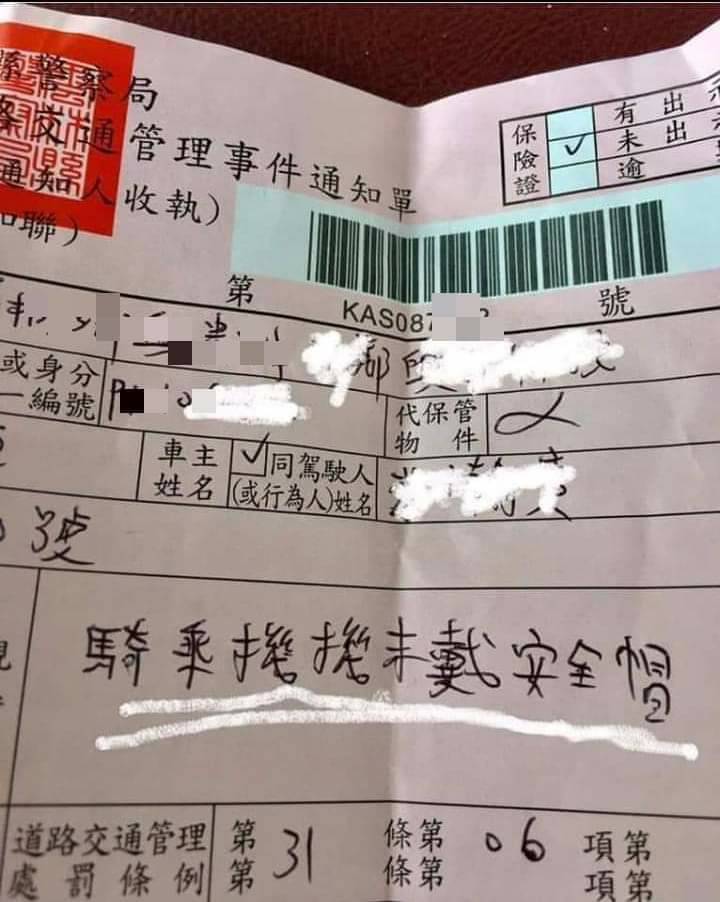 縣警察局
路交通管理事件通知單
通知人收執)
知聯)
保險證
有出示
✓ 未出示
逾
第 號
KAS087
或身分
一編號
代保管
物件
車主
姓名
✓ 同駕駛人
(或行為人)姓名
號
騎乘機機未戴安全帽
道路交通管理
處罰條例
第 31 條第 06 項第
第 條第 項第